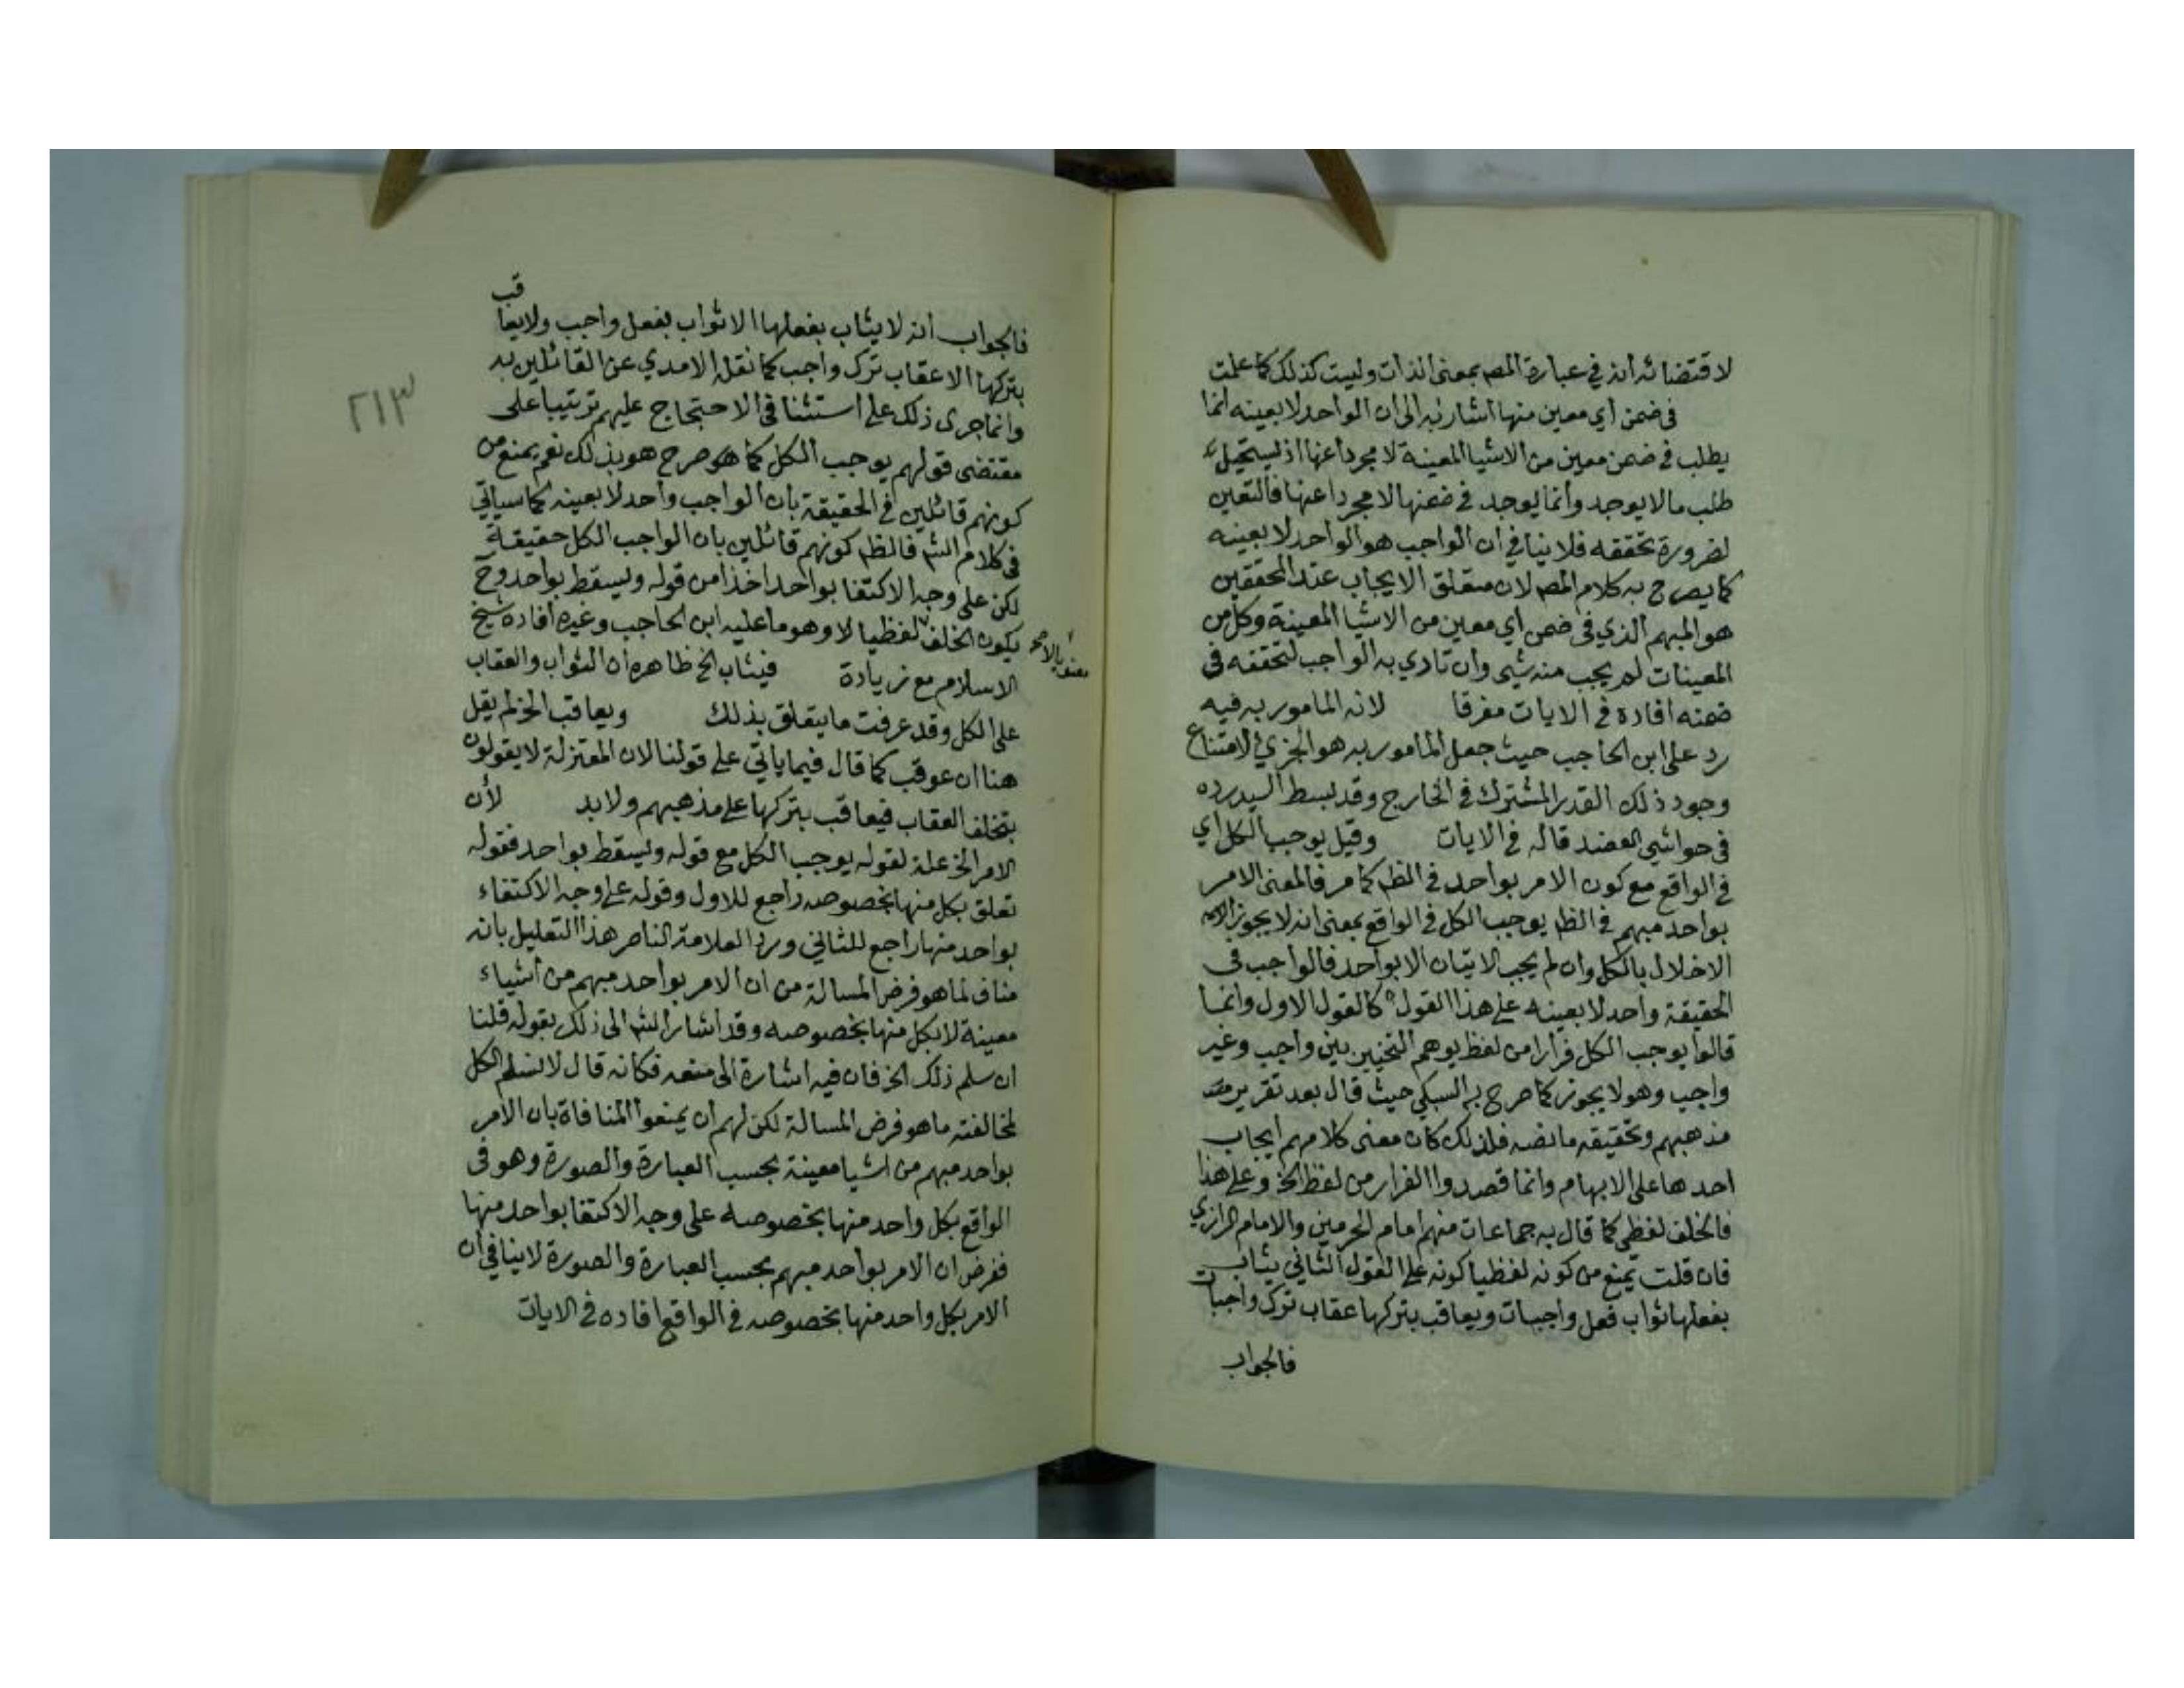 لاقتضائه انه في عبارة المصم بمعنى الذات وليست كذلك كما علمت
في ضمن اي معين منها اشار به الى ان الواحد لا بعينه انما
يطلب في ضمن معين من الاشيا المعينة لا مجردا عنها اذ يستحيل
طلب ما لا يوجد وانما يوجد في ضمنها لا مجردا عنها فالتعين
لضرورة تحققه فلا ينافي ان الواجب هو الواحد لا بعينه
كما يصرح به كلام المصم لان متعلق الايجاب عند المحققين
هو المبهم الذي في ضمن اي معين من الاشيا المعينة وكل من
المعينات لم يجب منه شيى وان تادي به الواجب لتحققه في
ضمنه افاده في الايات مفرقا لانه المامور به فيه
رد على ابن الحاجب حيث جعل المامور به هو الجزئي لامتناع
وجود ذلك القدر المشترك في الخارج وقد بسط السيد رده
في حواشي العضد قاله في الايات وقيل يوجب الكل اي
في الواقع مع كون الامر بواحد في الظم كما مر فالمعنى الامر
بواحد مبهم في الظم يوجب الكل في الواقع بمعنى انه لا يجوز
الاخلال بالكل وان لم يجب الاتيان الا بواحد فالواجب في
الحقيقة واحد لا بعينه على هذا القول كالقول الاول وانما
قالوا يوجب الكل فرارا من لفظ يوهم التخيير بين واجب وغير
واجب وهو لا يجوز كما صرح به السبكي حيث قال بعد تقرير
مذهبهم وتحقيقه ما نصه فلذلك كان معنى كلامهم ايجاب
احدها على الابهام وانما قصدوا الفرار من لفظ الخ وعلى هذا
فالخلف لفظي كما قال به جماعات منهم امام الحرمين والامام الرازي
فان قلت يمنع من كونه لفظيا كونه على القول الثاني يثاب
بفعلها ثواب فعل واجبات ويعاقب بتركها عقاب ترك واجبات
فالجواب
فالجواب انه لا يثاب بفعلها الا ثواب بفعل واجب ولا يعاقب
بتركها الا عقاب ترك واجب كما نقله الامدي عن القائلين به
وانما جرى ذلك على استثنا في الاحتجاج عليهم ترتيبا على
٢١٣
مقتضى قولهم يوجب الكل كما هو صرح هو بذلك نعم يمنع من
كونهم قائلين في الحقيقة بان الواجب واحد لا بعينه كما سياتي
في كلام الشم فالظم كونهم قائلين بان الواجب الكل حقيقة
لكن على وجه الاكتفا بواحد اخذا من قوله ويسقط بواحد وح
يكون الخلف لفظيا لا وهو ما عليه ابن الحاجب وغيره افاده شيخ
الاسلام مع زيادة فيثاب الخ ظاهره ان الثواب والعقاب
على الكل وقد عرفت ما يتعلق بذلك ويعاقب الخ لم يقل
هنا ان عوقب كما قال فيما ياتي على قولنا لان المعتزلة لا يقولون
بتخلف العقاب فيعاقب بتركها على مذهبهم ولا بد لأن
الامر الخ علة لقوله يوجب الكل مع قوله ويسقط بواحد فقوله
تعلق بكل منها بخصوصه راجع للاول وقوله على وجه الاكتفاء
بواحد منها راجع للثاني ورد العلامة الناصر هذا التعليل بانه
مناف لما هو فرض المسالة من ان الامر بواحد مبهم من اشياء
معينة لا بكل منها بخصوصه وقد اشار الشم الى ذلك بقوله قلنا
ان سلم ذلك الخ فان فيه اشارة الى منعه فكانه قال لا نسلم الكل
لمخالفته ما هو فرض المسالة لكن لهم ان يمنعوا المنافاة بان الامر
بواحد مبهم من اشيا معينة بحسب العبارة والصورة وهو في
الواقع بكل واحد منها بخصوصه على وجه الاكتفا بواحد منها
ففرض ان الامر بواحد مبهم بحسب العبارة والصورة لا ينافي ان
الامر بكل واحد منها بخصوصه في الواقع افاده في الايات